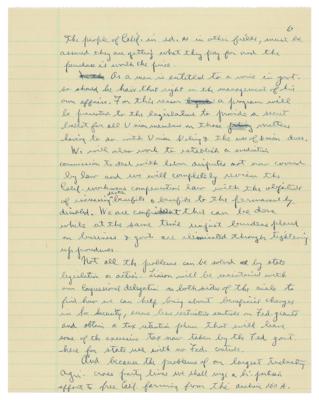 6
The people of Calif. in ed. as in other fields, must be
assured they are getting what they pay for and the
purchase is worth the price.
As a man is entitled to a voice in govt.
so should he have that right in the management of his
own affairs. For this reason a program will
be presented to the legislature to provide a secret
ballot for all Union members on those matters
having to do with Union policy & the use of Union dues.
We will also work to establish a
commission to deal with labor disputes not now covered
by law and we will completely review the
Calif. workmens compensation law with the objective
of increasing benefits & benefits to the permanently
disabled. We are confident this can be done
while at the same time unjust burdens placed
on business & govt. are eliminated through tightening
up procedures.
Not all the problems can be solved by state
legislation or action. Liaison will be maintained with
our Congressional delegation on both sides of the aisle to
find how we can help bring about beneficial changes
in So. Security, less restrictive on Fed. grants
and obtain a tax plan that will leave
some of the tax now taken by the Fed. govt.
here for state use with no Fed. controls.
And because the problems of our largest industry
Agri. cross party lines we shall urge a bi-partisan
effort to free Calif. farming from the